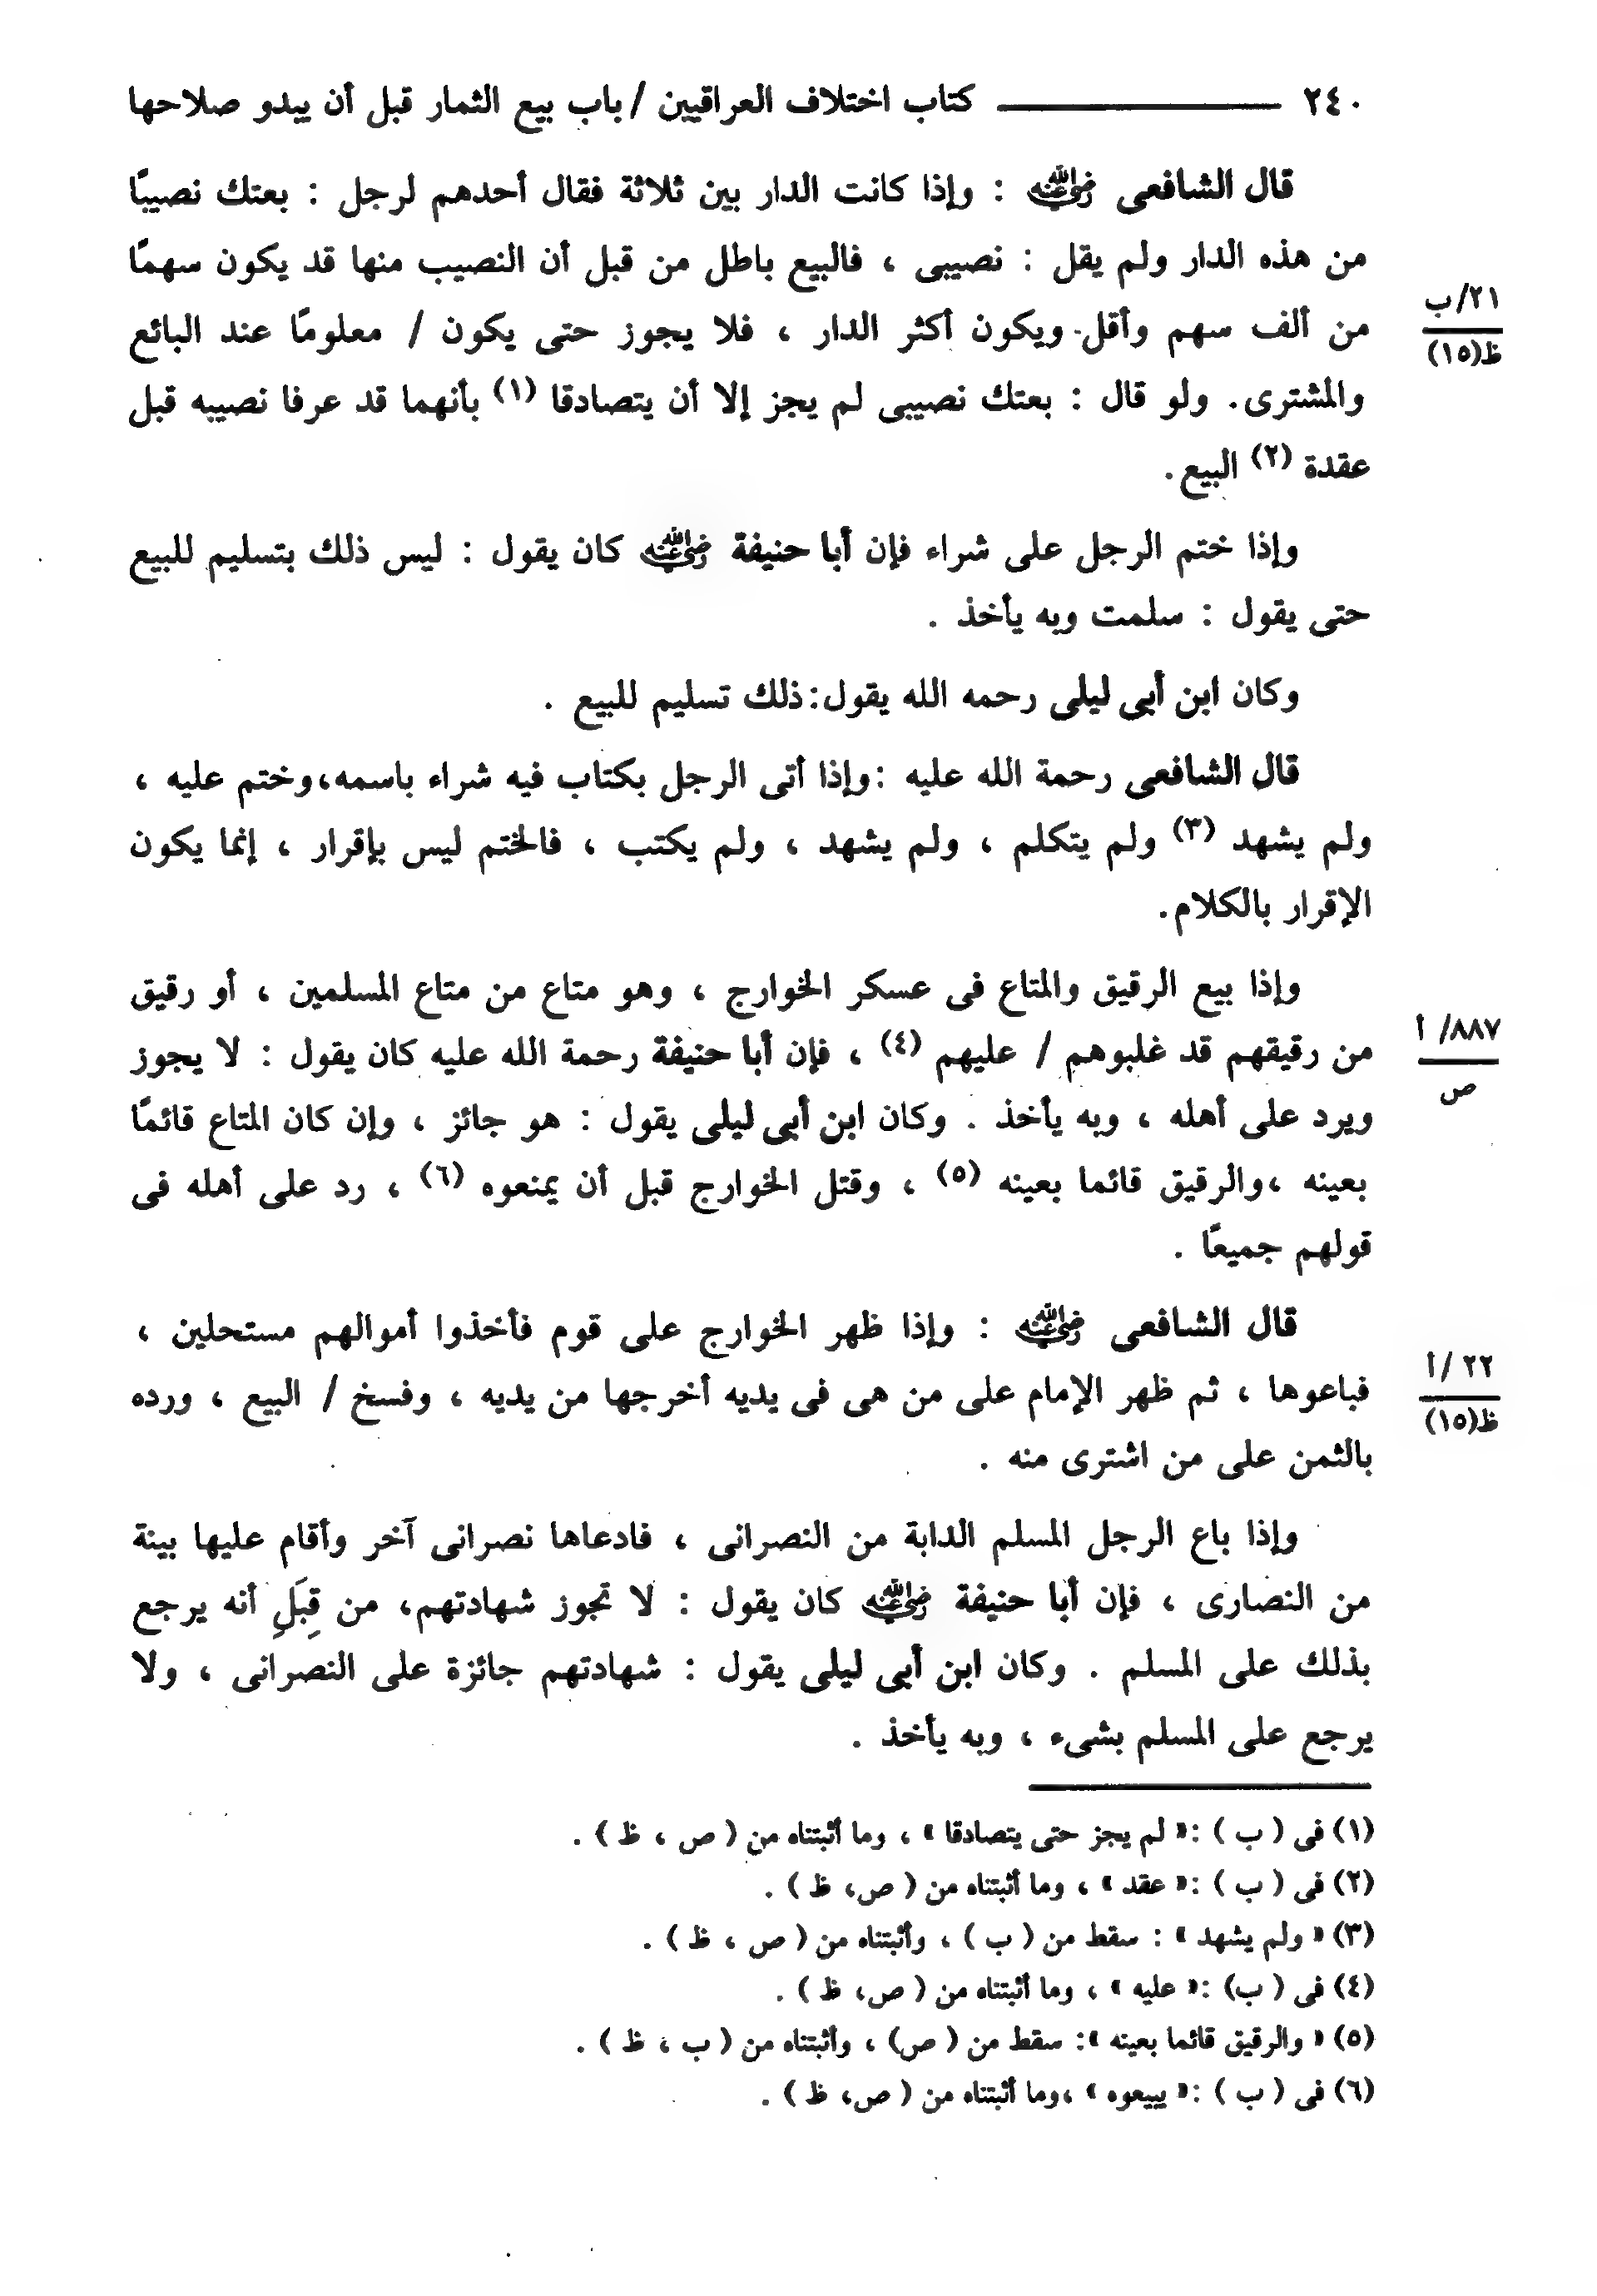 ٢٤٠ كتاب اختلاف العراقيين / باب بيع الثمار قبل أن يبدو صلاحها
قال الشافعى رضي الله عنه : وإذا كانت الدار بين ثلاثة فقال أحدهم لرجل : بعتك نصيبًا
من هذه الدار ولم يقل : نصيبى ، فالبيع باطل من قبل أن النصيب منها قد يكون سهمًا
من ألف سهم وأقل ويكون أكثر الدار ، فلا يجوز حتى يكون / معلومًا عند البائع
٢١/ب
ظ(١٥)
والمشترى. ولو قال : بعتك نصيبى لم يجز إلا أن يتصادقا (١) بأنهما قد عرفا نصيبه قبل
عقدة (٢) البيع.
وإذا ختم الرجل على شراء فإن أبا حنيفة رضي الله عنه كان يقول : ليس ذلك بتسليم للبيع
حتى يقول : سلمت وبه يأخذ .
وكان ابن أبى ليلى رحمه الله يقول:ذلك تسليم للبيع .
قال الشافعى رحمة الله عليه :وإذا أتى الرجل بكتاب فيه شراء باسمه،وختم عليه ،
ولم يشهد (٣) ولم يتكلم ، ولم يشهد ، ولم يكتب ، فالختم ليس بإقرار ، إنما يكون
الإقرار بالكلام.
وإذا بيع الرقيق والمتاع فى عسكر الخوارج ، وهو متاع من متاع المسلمين ، أو رقيق
من رقيقهم قد غلبوهم / عليهم (٤) ، فإن أبا حنيفة رحمة الله عليه كان يقول : لا يجوز
٨٨٧/ أ
ص
ويرد على أهله ، وبه يأخذ . وكان ابن أبى ليلى يقول : هو جائز ، وإن كان المتاع قائمًا
بعينه ،والرقيق قائما بعينه (٥) ، وقتل الخوارج قبل أن يمنعوه (٦) ، رد على أهله فى
قولهم جميعًا .
قال الشافعى رضي الله عنه : وإذا ظهر الخوارج على قوم فأخذوا أموالهم مستحلين ،
فباعوها ، ثم ظهر الإمام على من هى فى يديه أخرجها من يديه ، وفسخ / البيع ، ورده
٢٢ /أ
ظ(١٥)
بالثمن على من اشترى منه .
وإذا باع الرجل المسلم الدابة من النصرانى ، فادعاها نصرانى آخر وأقام عليها بينة
من النصارى ، فإن أبا حنيفة رضي الله عنه كان يقول : لا تجوز شهادتهم، من قِبَلِ أنه يرجع
بذلك على المسلم . وكان ابن أبى ليلى يقول : شهادتهم جائزة على النصرانى ، ولا
يرجع على المسلم بشىء ، وبه يأخذ .
(١) فى ( ب ) :« لم يجز حتى يتصادقا » ، وما أثبتناه من ( ص ، ظ ) .
(٢) فى ( ب ) :« عقد » ، وما أثبتناه من ( ص، ظ ) .
(٣) « ولم يشهد » : سقط من ( ب ) ، وأثبتناه من ( ص ، ظ ) .
(٤) فى ( ب) :« عليه » ، وما أثبتناه من ( ص، ظ ) .
(٥) « والرقيق قائما بعينه »: سقط من ( ص) ، وأثبتناه من ( ب ، ظ ) .
(٦) فى ( ب ) :« يبيعوه » ،وما أثبتناه من ( ص، ظ ) .